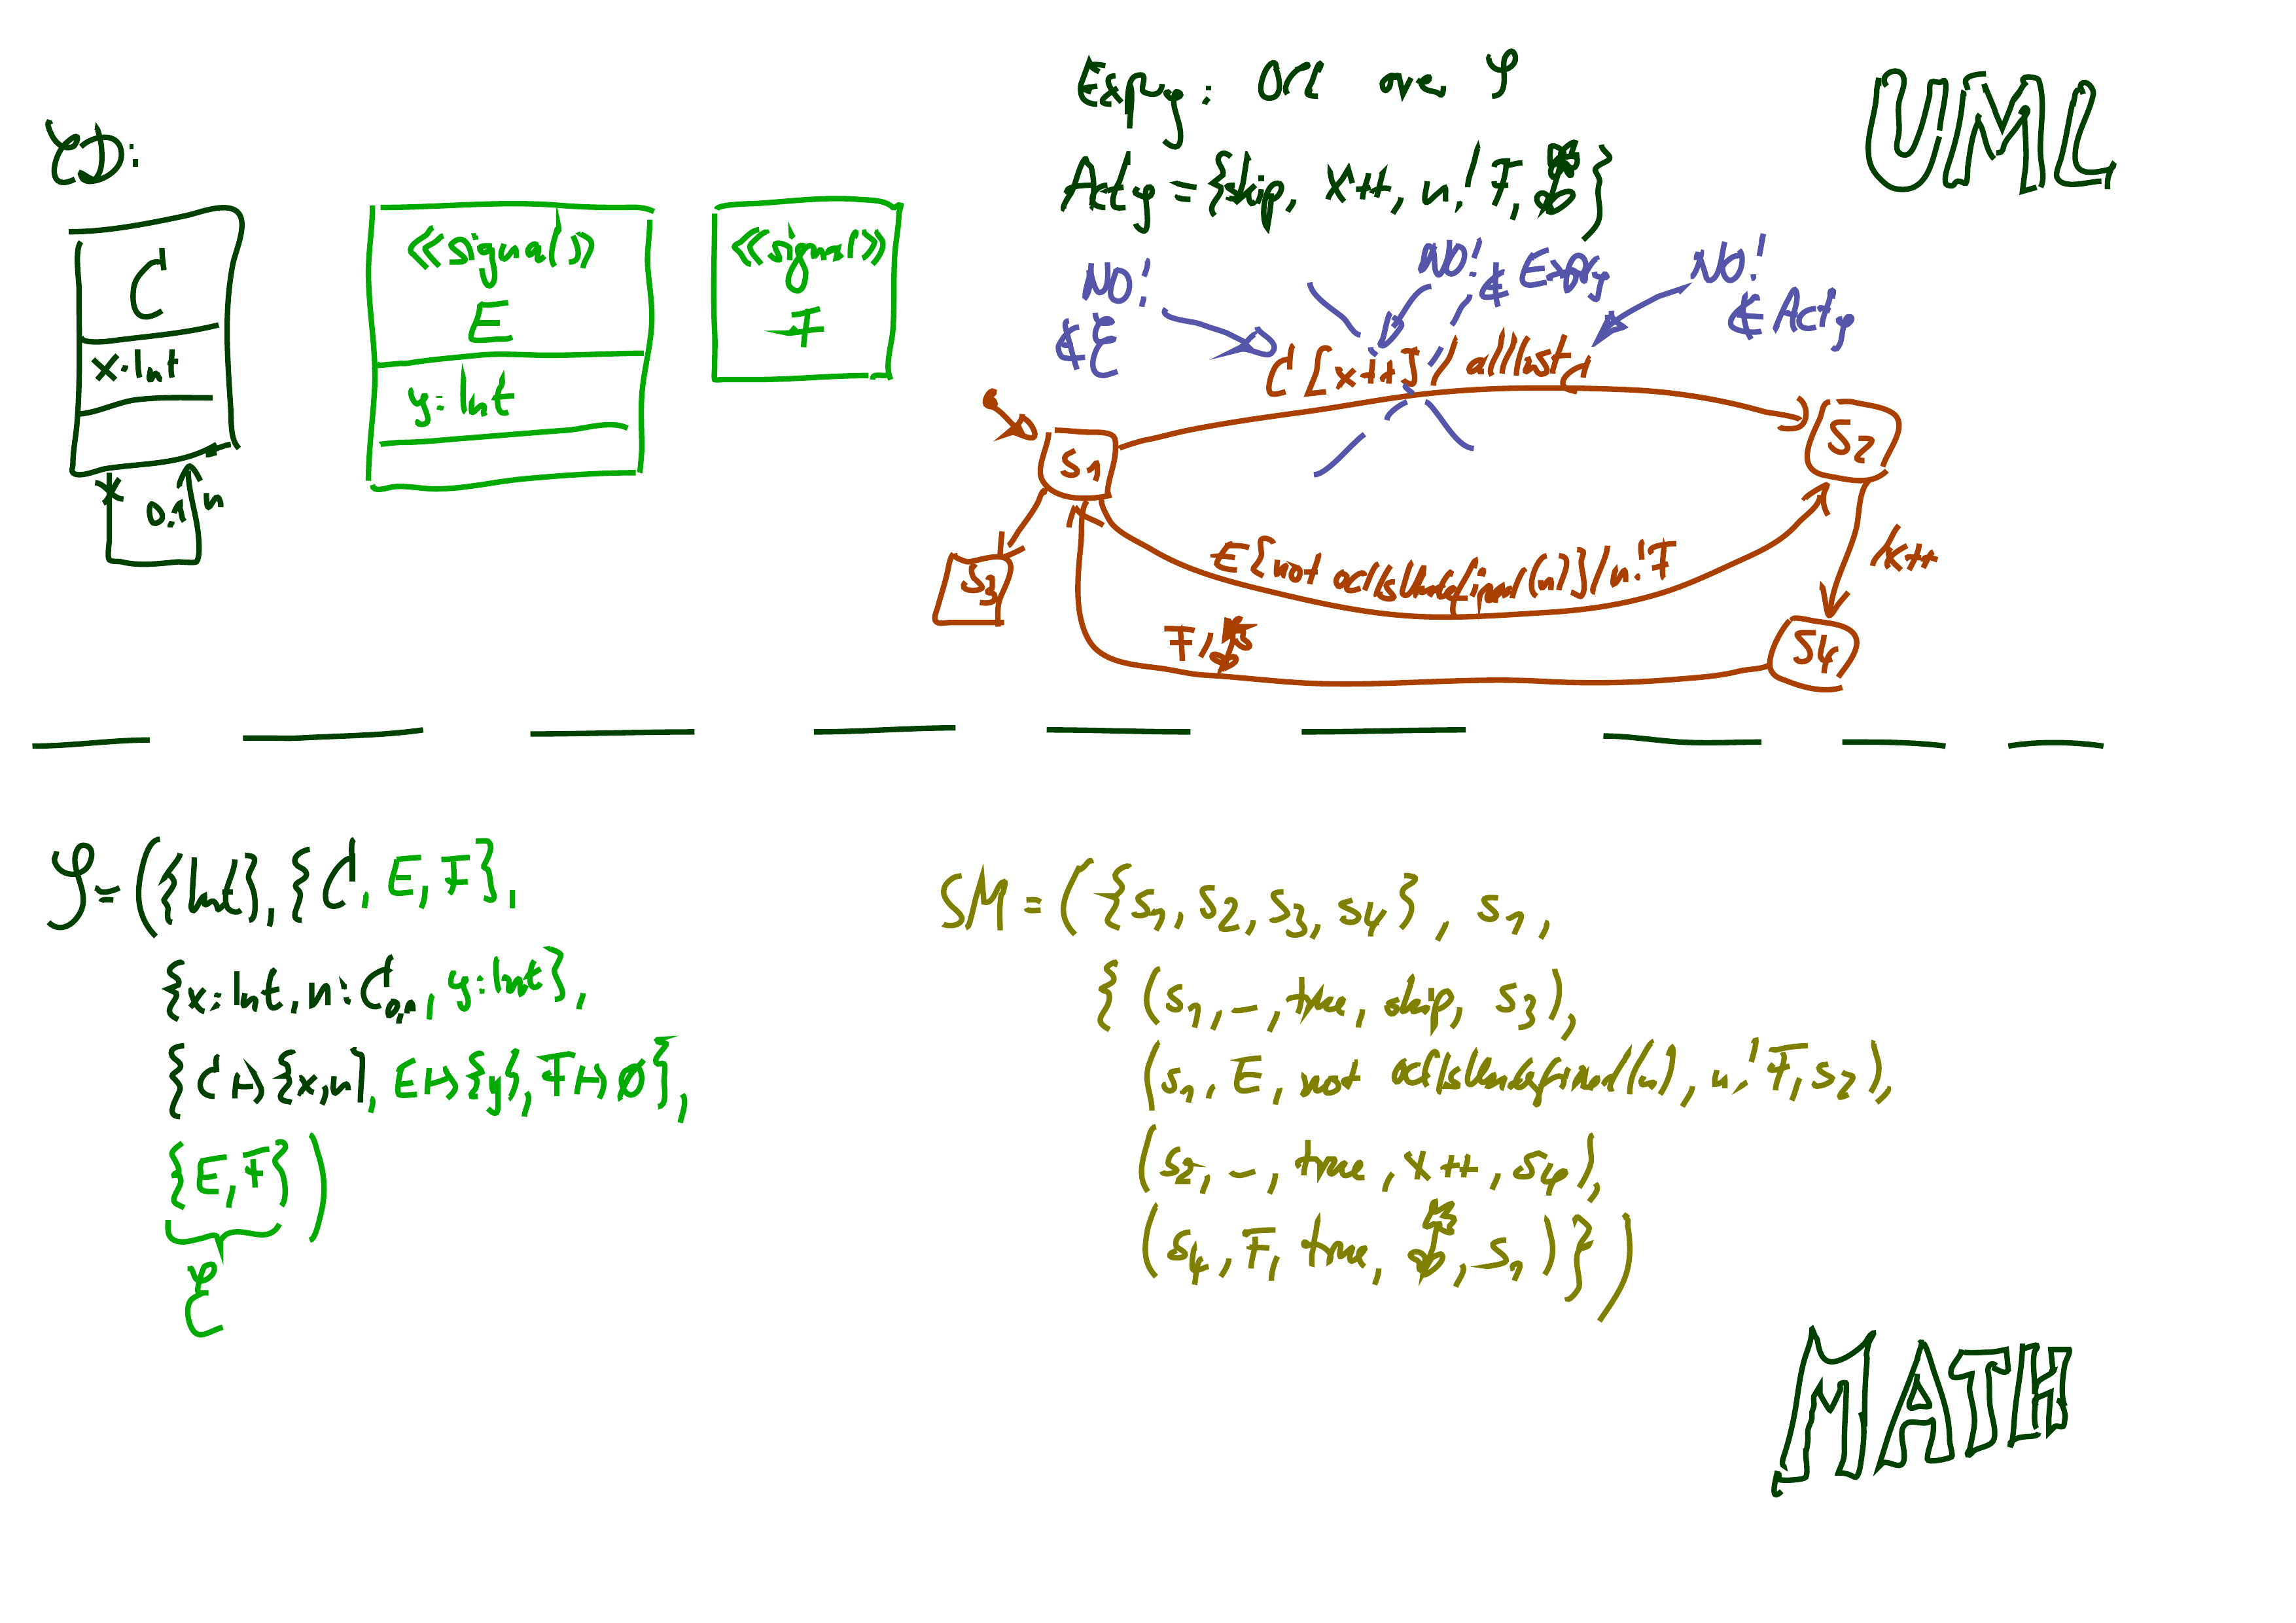 UML
CD:
C
x:Int
0,1 n
«signal»
E
y:Int
«signal»
F
Expr𝒮: OCL over 𝒮
Act𝒮 = {skip, x++, n!F, }
NO!
∉ ℰ
NO!
∉ Expr𝒮
NO!
∉ Act𝒮
C [x++] / allInst_C
S1
S2
S3
E[not oclIsUndefined(n)] / n!F
/x++
F/
S4
𝒮 = ({Int}, {C, E, F},
{x:Int, n:C0,1, y:Int},
{C ↦ {x,n}, E ↦ {y}, F ↦ ∅},
{E, F})
ℰ
SM = ({s1, s2, s3, s4}, s1,
{(s1, _, true, skip, s3),
(s1, E, not oclIsUndefined(n), n!F, s2),
(s2, _, true, x++, s4),
(s4, F, true, , s1)})
MATH